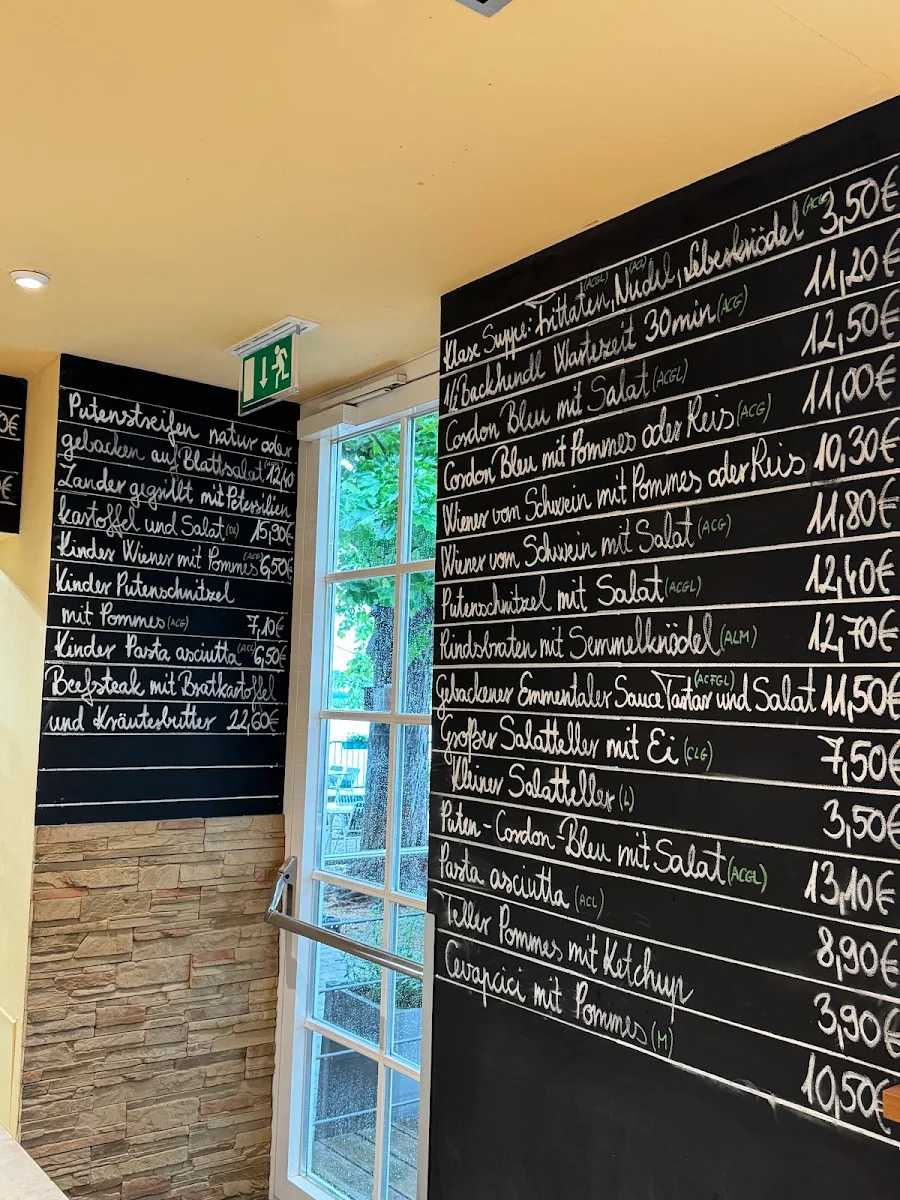 0€
€
Putenstreifen natur oder
gebacken auf Blattsalat 12,40
Zander gegrillt mit Petersilien
kartoffel und Salat 15,90€
Kinder Wiener mit Pommes (ACG) 6,50€
Kinder Putenschnitzel
mit Pommes (ACG) 7,10€
Kinder Pasta asciutta 6,50€
Beefsteak mit Bratkartoffel
und Kräuterbutter 22,60€
Klare Suppe: Frittaten, (ACGL) Nudel, (ACL) Leberknödel 3,50€
1/2 Backhendl Wartezeit 30min (ACG) 11,20€
Cordon Bleu mit Salat (ACGL) 12,50€
Cordon Bleu mit Pommes oder Reis (ACG) 11,00€
Wiener vom Schwein mit Pommes oder Reis 10,30€
Wiener vom Schwein mit Salat (ACG) 11,80€
Putenschnitzel mit Salat (ACGL) 12,40€
Rindsbraten mit Semmelknödel (ALM) 12,70€
Gebackener Emmentaler Sauce Tartar (ACFGL) und Salat 11,50€
Großer Salatteller mit Ei (CLG) 7,50€
Kleiner Salatteller (L) 3,50€
Puten-Cordon-Bleu mit Salat (ACGL) 13,10€
Pasta asciutta (ACL) 8,90€
Teller Pommes mit Ketchup 3,90€
Cevapcici mit Pommes (M) 10,50€